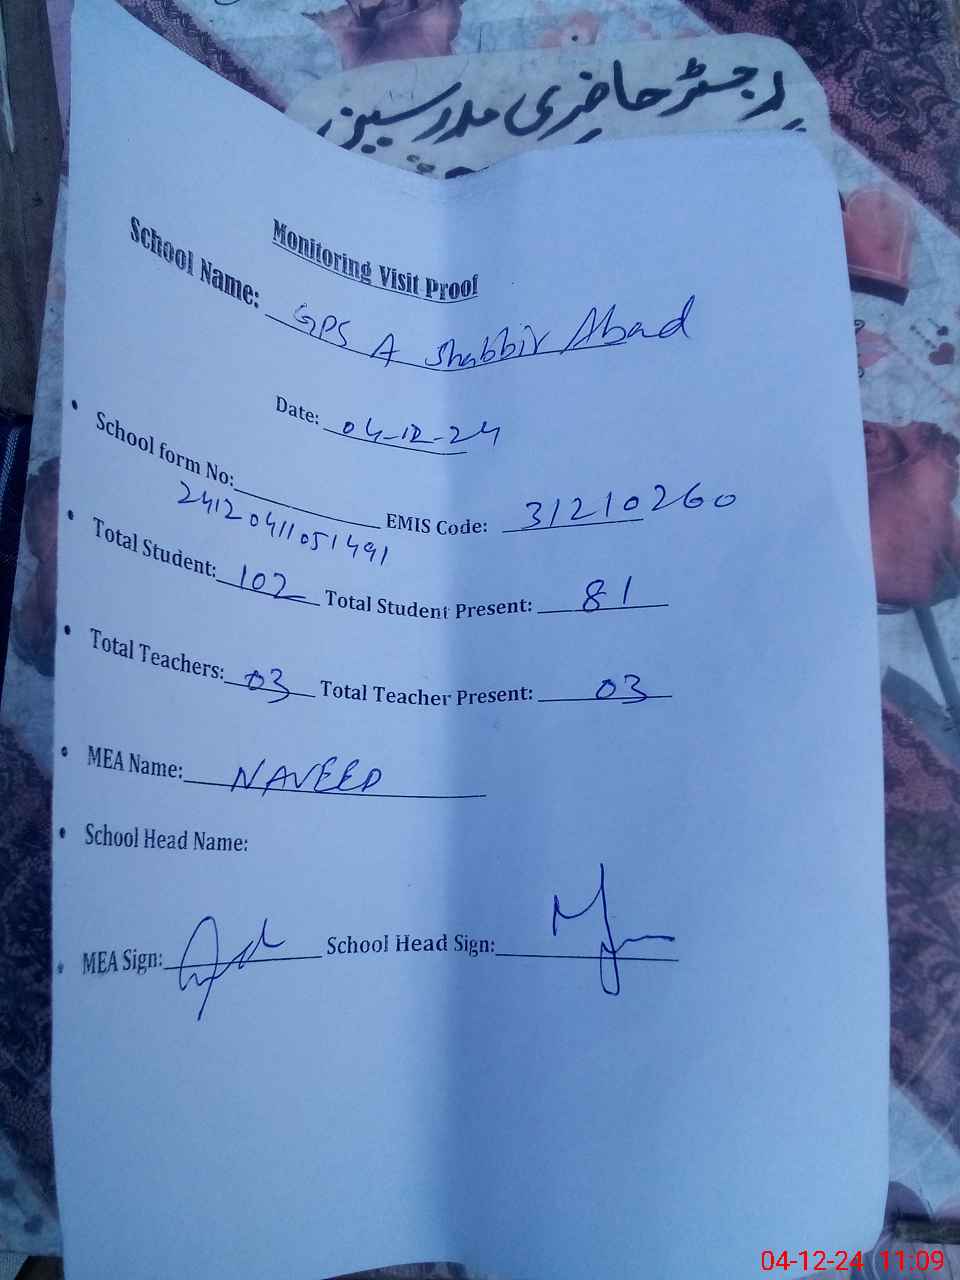 رجسٹر حاضری مدرسین
Monitoring Visit Proof
School Name: GPS A Shabbir Abad
Date: 04-12-24
• School form No: 24120411051491 EMIS Code: 31210260
• Total Student: 102 Total Student Present: 81
• Total Teachers: 03 Total Teacher Present: 03
• MEA Name: NAVEED
• School Head Name:
• MEA Sign: School Head Sign:
04-12-24 11:09